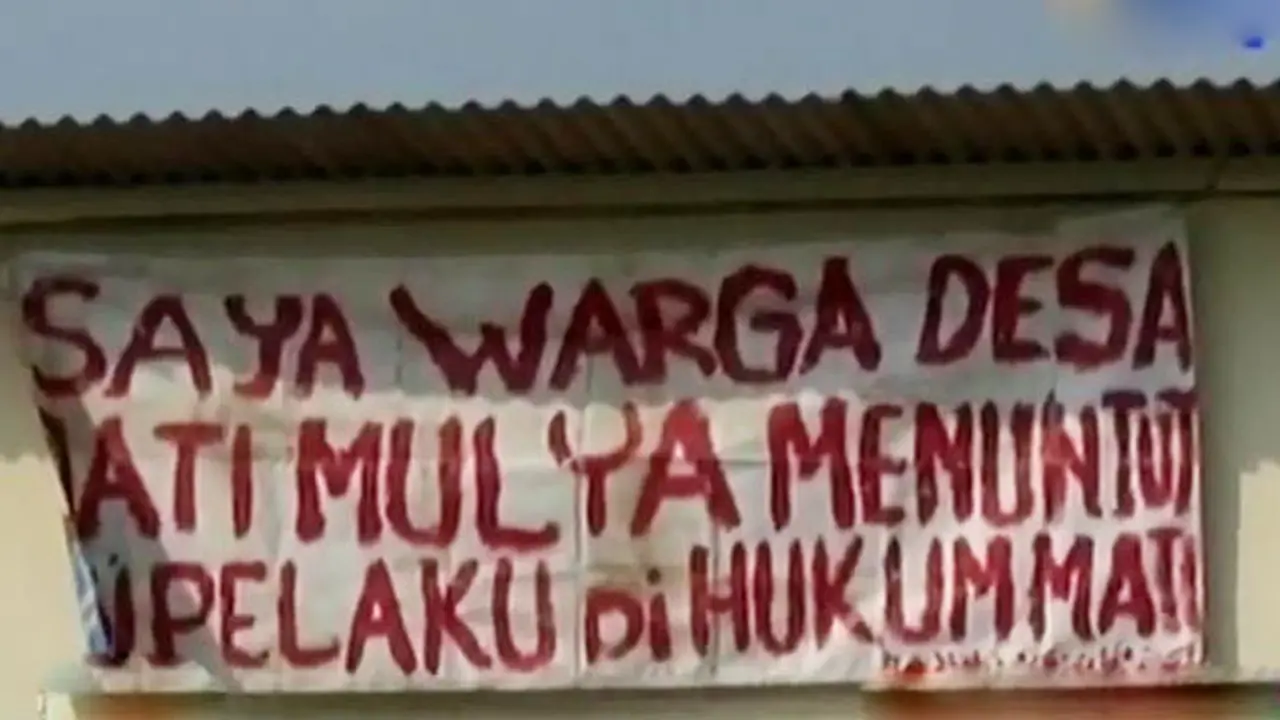 SAYA WARGA DESA
ATI MULYA MENUNTUT
PELAKU Di HUKUM MATI